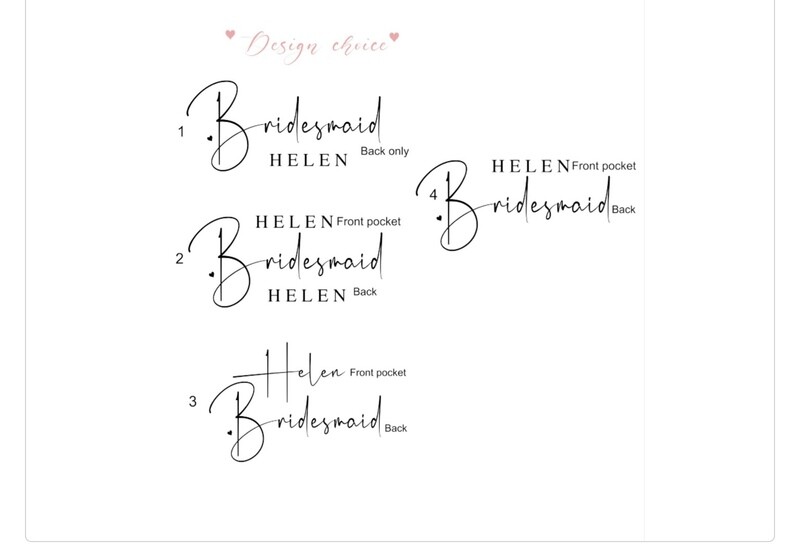 Design choice
1
Bridesmaid
HELEN Back only
2
HELEN Front pocket
Bridesmaid
HELEN Back
3
Helen Front pocket
Bridesmaid Back
4
HELEN Front pocket
Bridesmaid Back